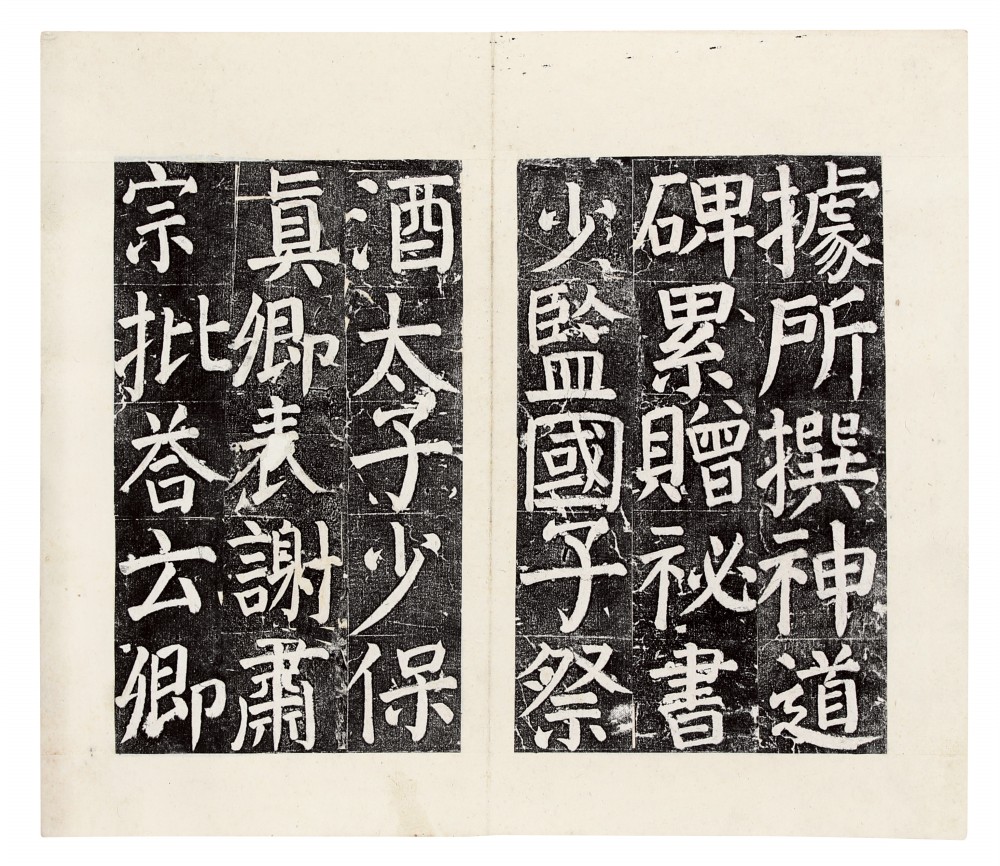 據所撰神道
碑累贈祕書
少監國子祭
酒太子少保
真卿表謝肅
宗批荅云卿